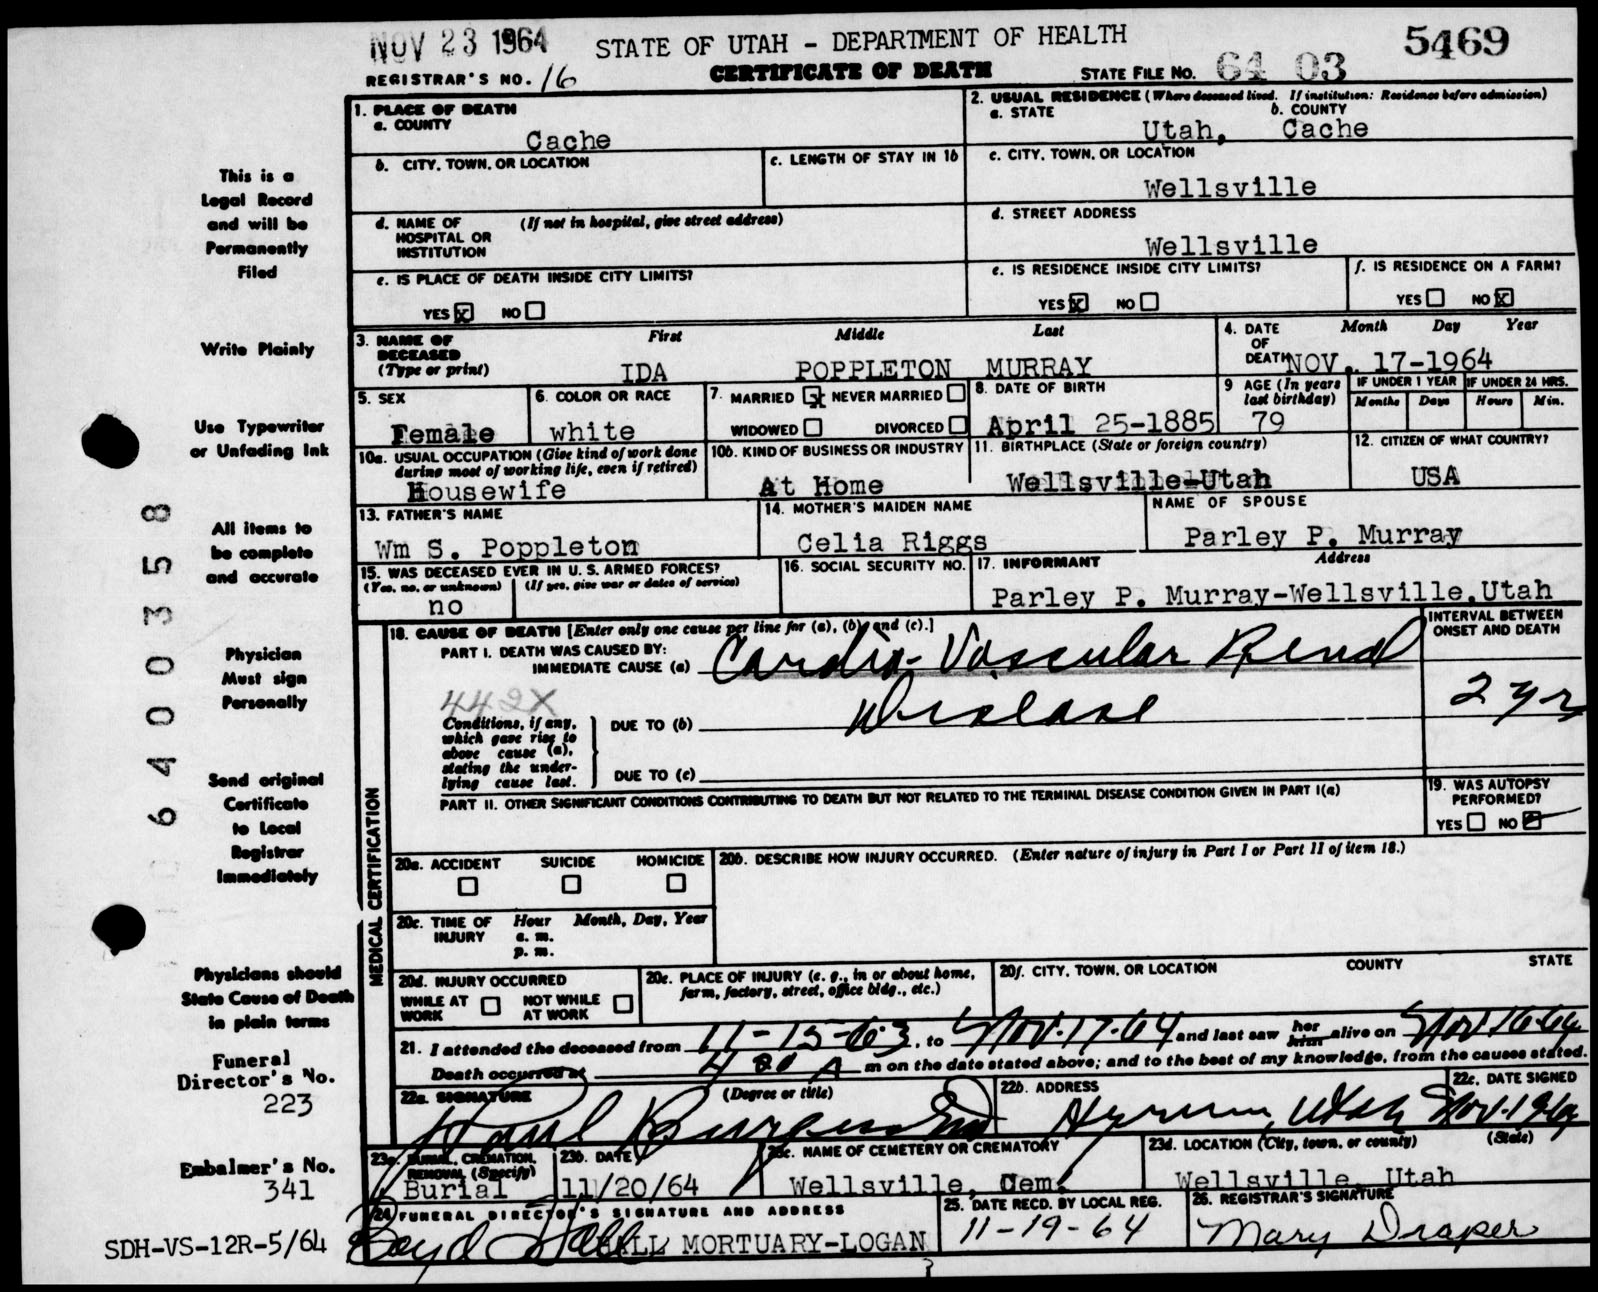 NOV 23 1964 STATE OF UTAH - DEPARTMENT OF HEALTH 5469
REGISTRAR'S NO. 16 CERTIFICATE OF DEATH STATE FILE NO. 64 03
This is a
Legal Record
and will be
Permanently
Filed
Write Plainly
Use Typewriter
or Unfading Ink
All items to
be complete
and accurate
Physician
Must sign
Personally
Send original
Certificate
to Local
Registrar
Immediately
Physicians should
State Cause of Death
in plain terms
Funeral
Director's No.
223
Embalmer's No.
341
SDH-VS-12R-5/64
6400358
1. PLACE OF DEATH
a. COUNTY
Cache
2. USUAL RESIDENCE (Where deceased lived. If institution: Residence before admission)
a. STATE b. COUNTY
Utah, Cache
b. CITY, TOWN, OR LOCATION
c. LENGTH OF STAY IN 1b
c. CITY, TOWN, OR LOCATION
Wellsville
d. NAME OF (If not in hospital, give street address)
HOSPITAL OR
INSTITUTION
d. STREET ADDRESS
Wellsville
e. IS PLACE OF DEATH INSIDE CITY LIMITS?
YES X NO
e. IS RESIDENCE INSIDE CITY LIMITS?
YES X NO
f. IS RESIDENCE ON A FARM?
YES NO X
3. NAME OF First Middle Last
DECEASED
(Type or print) IDA POPPLETON MURRAY
4. DATE Month Day Year
OF
DEATH NOV. 17-1964
5. SEX
Female
6. COLOR OR RACE
white
7. MARRIED X NEVER MARRIED
WIDOWED DIVORCED
8. DATE OF BIRTH
April 25-1885
9 AGE (In years
last birthday)
79
IF UNDER 1 YEAR IF UNDER 24 HRS.
Months Days Hours Min.
10a. USUAL OCCUPATION (Give kind of work done
during most of working life, even if retired)
Housewife
10b. KIND OF BUSINESS OR INDUSTRY
At Home
11. BIRTHPLACE (State or foreign country)
Wellsville-Utah
12. CITIZEN OF WHAT COUNTRY?
USA
13. FATHER'S NAME
Wm S. Poppleton
14. MOTHER'S MAIDEN NAME
Celia Riggs
NAME OF SPOUSE
Parley P. Murray
15. WAS DECEASED EVER IN U.S. ARMED FORCES?
(Yes, no, or unknown) (If yes, give war or dates of service)
no
16. SOCIAL SECURITY NO.
17. INFORMANT Address
Parley P. Murray-Wellsville,Utah
MEDICAL CERTIFICATION
18. CAUSE OF DEATH [Enter only one cause per line for (a), (b) and (c).]
INTERVAL BETWEEN
ONSET AND DEATH
PART I. DEATH WAS CAUSED BY:
IMMEDIATE CAUSE (a) Cardio-Vascular Renal
442X
Conditions, if any,
which gave rise to
above cause (a),
stating the under-
lying cause last.
DUE TO (b) Disease 2 yrs
DUE TO (c)
PART II. OTHER SIGNIFICANT CONDITIONS CONTRIBUTING TO DEATH BUT NOT RELATED TO THE TERMINAL DISEASE CONDITION GIVEN IN PART I(a)
19. WAS AUTOPSY
PERFORMED?
YES NO
20a. ACCIDENT SUICIDE HOMICIDE
20b. DESCRIBE HOW INJURY OCCURRED. (Enter nature of injury in Part I or Part II of item 18.)
20c. TIME OF Hour Month, Day, Year
INJURY a. m.
p. m.
20d. INJURY OCCURRED
WHILE AT WORK NOT WHILE AT WORK
20e. PLACE OF INJURY (e. g., in or about home,
farm, factory, street, office bldg., etc.)
20f. CITY, TOWN, OR LOCATION COUNTY STATE
21. I attended the deceased from 11-15-63, to Nov. 17-64 and last saw her him alive on Nov 16-64
Death occurred at 4 A m on the date stated above; and to the best of my knowledge, from the causes stated.
22a. SIGNATURE (Degree or title)
Paul Burgess MD
22b. ADDRESS
Hyrum, Utah
22c. DATE SIGNED
Nov. 19-64
23a. BURIAL, CREMATION,
REMOVAL (Specify)
Burial
23b. DATE
11/20/64
23c. NAME OF CEMETERY OR CREMATORY
Wellsville, Cem.
23d. LOCATION (City, town, or county) (State)
Wellsville, Utah
24. FUNERAL DIRECTOR'S SIGNATURE AND ADDRESS
Boyd Hall HALL MORTUARY-LOGAN
25. DATE RECD. BY LOCAL REG.
11-19-64
26. REGISTRAR'S SIGNATURE
Mary Draper